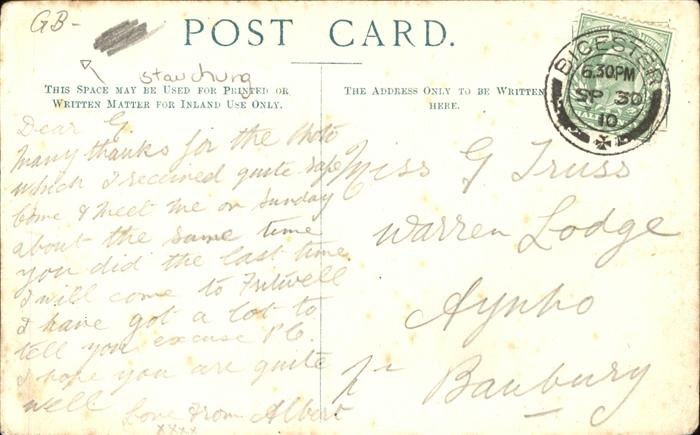 GB-
POST CARD.
stauchung
THIS SPACE MAY BE USED FOR PRINTED OR
WRITTEN MATTER FOR INLAND USE ONLY.
THE ADDRESS ONLY TO BE WRITTEN
HERE.
BICESTER
6.30PM
SP 30
10
Dear G.
Many thanks for the Photo
which I received quite safe
Come & Meet me on Sunday
about the same time
you did the last time
I will come to Fritwell
I have got a lot to
tell you excuse P.C.
I hope you are quite
well
Love from Albert
xxxx
Miss G Truss
Warren Lodge
Aynho
Nr Banbury